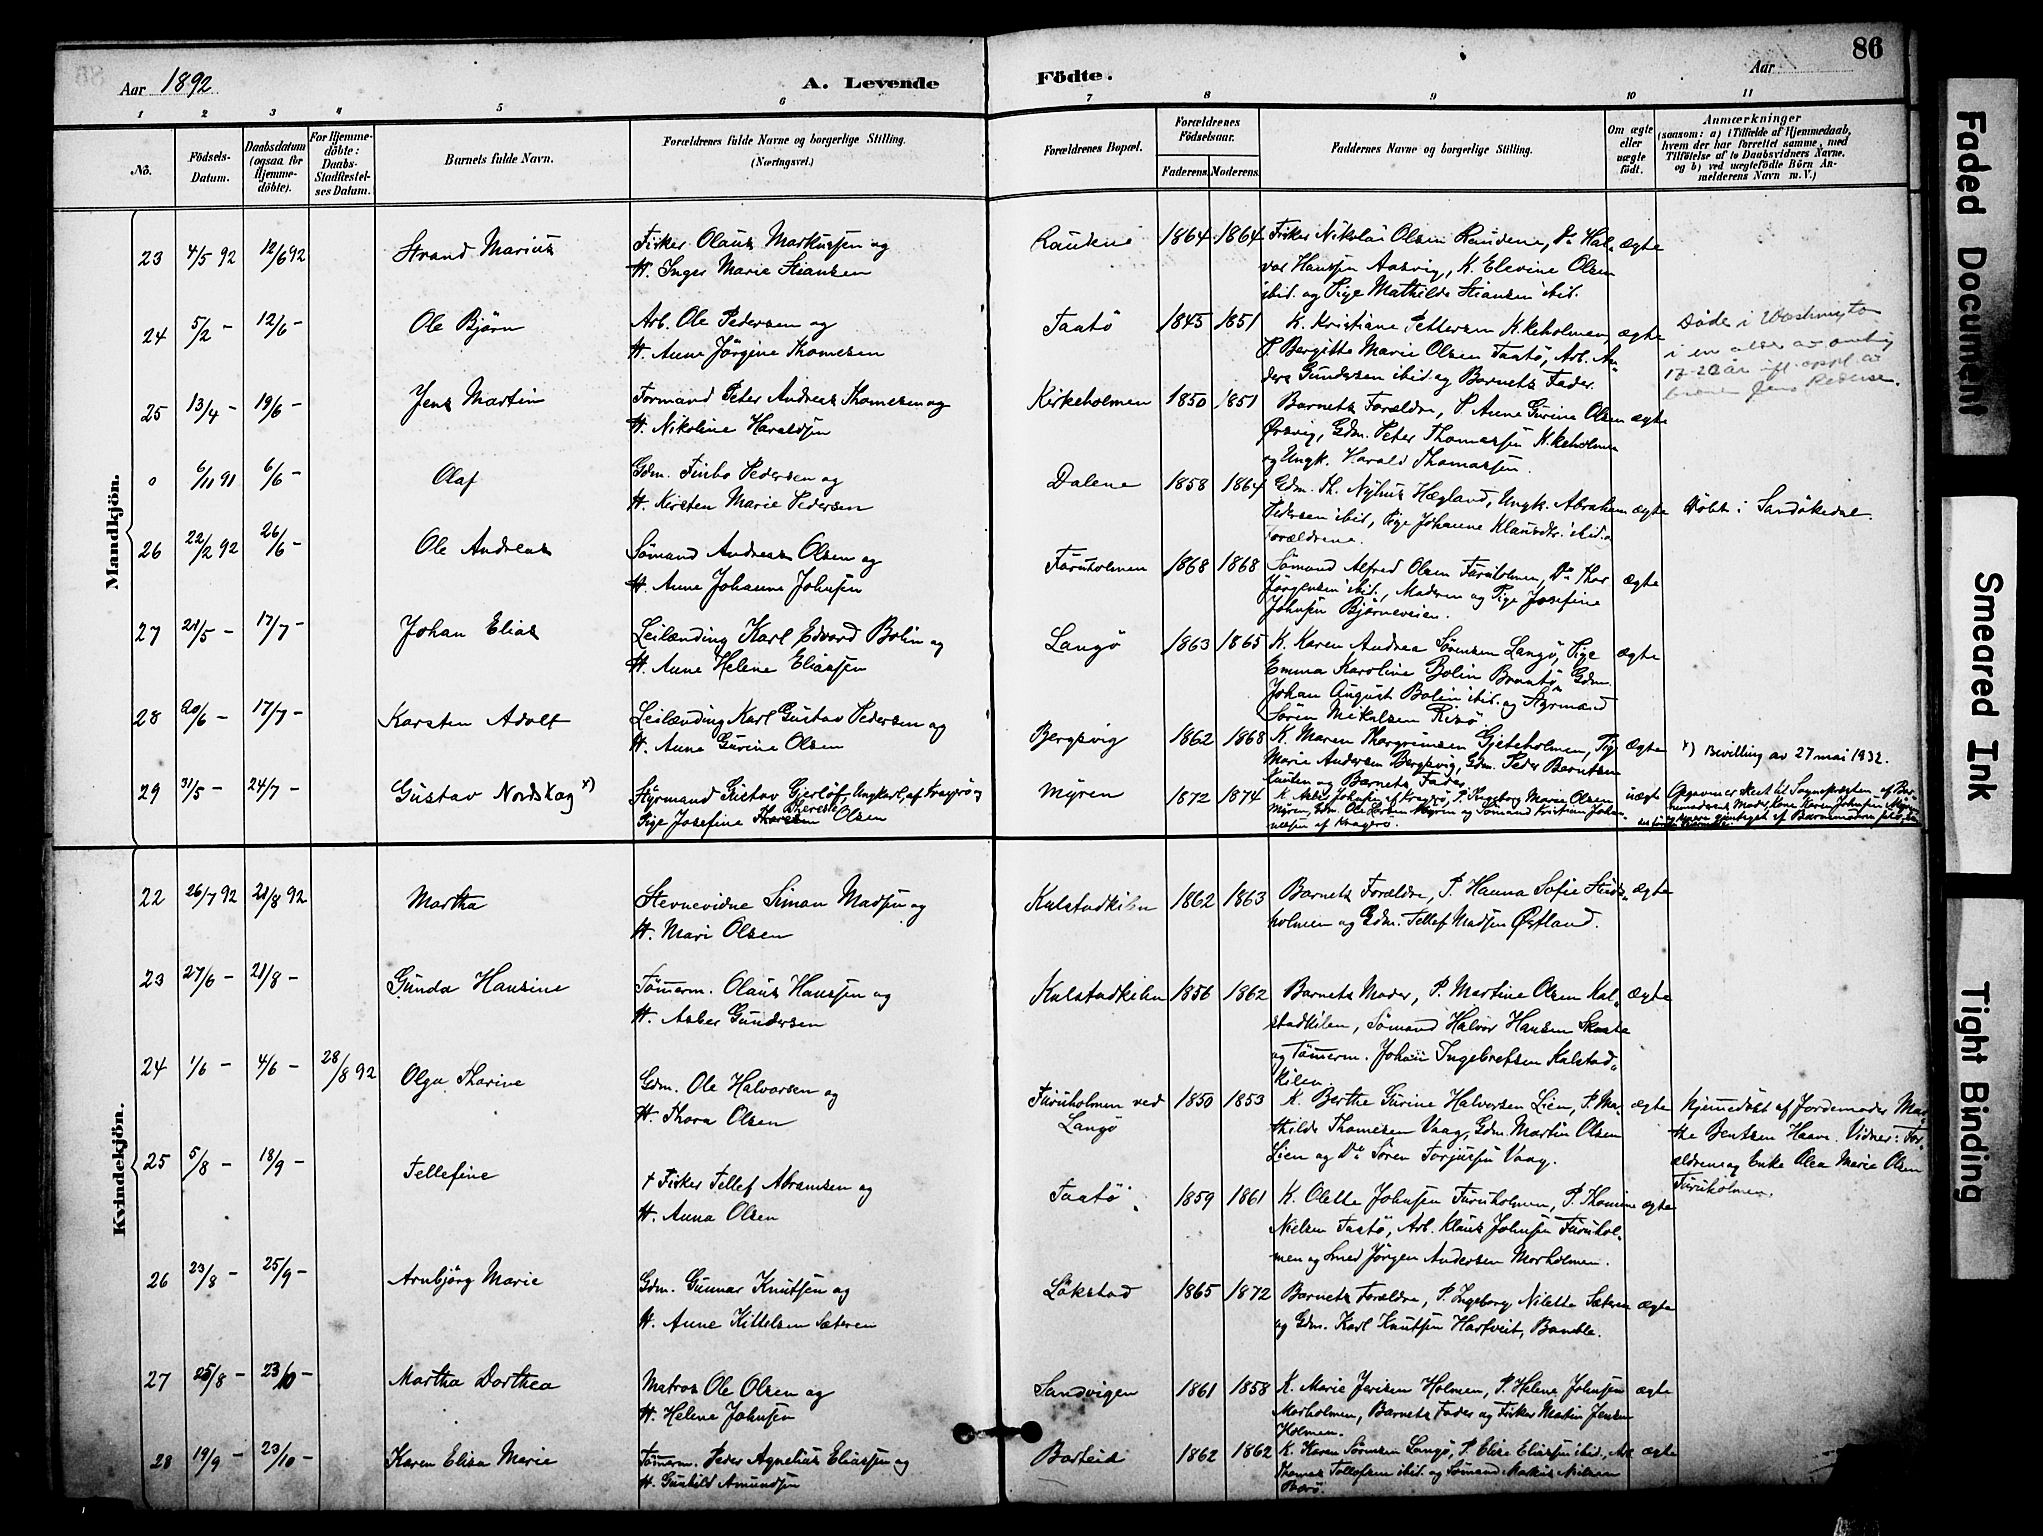 86
Aar 1892
A. Levende
Födte.
Aar
1 2 3 4 5 6 7 8 9 10 11
No.
Födsels-Datum.
Daabsdatum (ogsaa for Hjemme-döbte).
For Hjemme-döbte: Daabs-Stadfæstel-ses Datum.
Barnets fulde Navn.
Forældrenes fulde Navne og borgerlige Stilling. (Næringsvei.)
Forældrenes Bopæl.
Forældrenes Födselsaar.
Faderens. Moderens.
Faddernes Navne og borgerlige Stilling.
Om ægte eller uægte födt.
Anmærkninger
(saasom: a) i Tilfælde af Hjemmedaab, hvem der har forrettet samme, med Tilföielse af to Daabsvidners Navne, og b) ved uægtefödte Börn Anmelderens Navn m. V.)
Mandkjön.
23 4/5 92 12/6 92 Strand Marius
Fisker Olaus Markussen og
H. Inger Marie Stiansen
Raudene 1864 1864
Fisker Nikolai Olsen Raudene, Do Hal-
vor Hanssen Aasvig, K. Elevine Olsen
ibid. og Pige Mathilde Stiansen ibid.
ægte
24 5/2 – 12/6 – Ole Bjørn
Arb. Ole Pedersen og
H. Anne Jörgine Thomesen
Taatö 1845 1851
K. Kristiane Pettersen K.keholmen,
P. Bergitte Marie Olsen Taatö, Arb. An-
ders Gundersen ibid. og Barnets Fader.
ægte
Døde i Washington
i en alder av omtrig
17-20 år ifl. oppl. av
Jens Pedersen.
25 13/4 – 19/6 – Jens Martin
Formand Peter Andreas Thomesen og
H. Nikoline Haraldsen
Kirkeholmen 1850 1851
Barnets Forældre, P. Anne Gurine Olsen
Örsvig, Gdm. Peter Thomassen K.keholmen
og Ungk. Harald Thomassen.
ægte
0 6/11 91 6/6 – Olaf
Gdm. Finbo Pedersen og
H. Kirsten Marie Pedersen
Dalene 1858 1864
Gdm. Th. Nyhus Hægland, Ungk. Abraham
Pedersen ibid, Pige Johanne Klausdtr. ibid. og
Forældrene.
ægte
Döbt i Sandökedal.
26 22/2 92 26/6 – Ole Andreas
Sömand Andreas Olsen og
H. Anne Johanne Johnsen
Furuholmen 1868 1868
Sömand Alfred Olsen Furuholmen, Do Thor
Jörgensen ibid., Moderen og Pige Josefine
Johnsen Bjørneveien.
ægte
27 21/5 – 17/7 – Johan Elias
Leilænding Karl Edvard Bolin og
H. Anne Helene Eliassen
Langö 1863 1865
K. Karen Andrea Sörensen Langö, Pige
Emma Karoline Bolin Braatö, Gdm.
Johan August Bolin ibid. og Styrmand
Sören Mikalsen Risö
ægte
28 20/6 – 17/7 – Karsten Adolf
Leilænding Karl Gustav Pedersen og
H. Anne Gurine Olsen
Bergsvig 1862 1868
K. Maren Thorgrimsen Gjeteholmen, Pig
Marie Andersen Bergsvig, Gdm. Peder Berntsen
og Barnets Fader
ægte
x) Bevilling av 27 mai 1932.
29 31/5 – 24/7 – Gustav Nordskog x)
Styrmand Gustav Gjerlöf, Ungkarl, af Kragerö og
Pige Josefine Therese Olsen
Myren 1872 1874
K. Asber Johnsen af Kragerö, P. Ingeborg Marie Olsen
Myren, Gdm. Ole Larsen Myren og Sömand Kristian Johan-
nesen af Kragerö.
uægte
Opgivelse skeet til Sognepræsten af Bar-
nemoderens Moder, Kone Karen Johnsen Myren
og senere gjentaget af Barnemoderen selv.
Kvindekjön.
22 26/7 92 21/8 92 Martha
Stevnevidne Simon Madsen og
H. Mari Olsen
Kalstadkilen 1862 1863
Barnets Forældre, P. Hanna Sofie Skuds-
holmen og Gdm. Tellef Madsen Østland.
ægte
23 27/6 – 21/8 – Gunda Hansine
Tömerm. Olaus Hanssen og
H. Asber Gundersen
Kalstadkilen 1856 1862
Barnets Moder, P. Martine Olsen Kal-
stadkilen, Sömand Halvor Hansen Skaate
og Tömerm. Johan Ingebretsen Kalstad-
kilen.
ægte
24 1/6 – 4/6 – 28/8 92 Olga Thorine
Gdm. Ole Halvorsen og
H. Thora Olsen
Furuholmen ved
Langö
1850 1853
K. Berthe Gurine Halvorsen Lien, P. Ma-
thilde Thomesen Vaag, Gdm. Martin Olsen
Lien og Do Sören Torjussen Vaag.
ægte
Hjemmedöbt af Jordemoder Mar-
the Bentsen Haave. Vidner: For-
ældrene og Enke Olea Marie Olsen
Furuholmen.
25 5/8 – 18/9 – Tellefine
† Fisker Tellef Abramsen og
H. Anna Olsen
Taatö 1859 1861
K. Olette Johnsen Furuholmen, P. Thomine
Nielsen Taatö, Arb. Klaus Johnsen Furuhol-
men og Smed Jörgen Andersen Morholmen.
ægte
26 23/8 – 25/9 – Arnbjörg Marie
Gdm. Gunnar Knutsen og
H. Anne Kittelsen Sæteren
Lökstad 1865 1872
Barnets Forældre, P. Ingeborg Nilette Sæteren
og Gdm. Karl Knutsen Hartveit, Bamble.
ægte
27 25/8 – 23/10 – Martha Dorthea
Matros Ole Olsen og
H. Helene Johnsen
Sandvigen 1861 1858
K. Marie Jensen Holmen, P. Helene Johnsen
Morholmen, Barnets Fader og Fisker Martin Jensen
Holmen.
ægte
28 19/9 – 23/10 – Karen Elisa Marie
Tömerm. Peder Agnelius Eliassen og
H. Gunhild Amundsen
Barleid 1862 1862
K. Karen Sörensen Langö, P. Elise Eliassen ibid., Arb.
Thomas Tollefsen ibid. og Sömand Markus Nielsen
ægte
Faded Document
Smeared Ink
Tight Binding